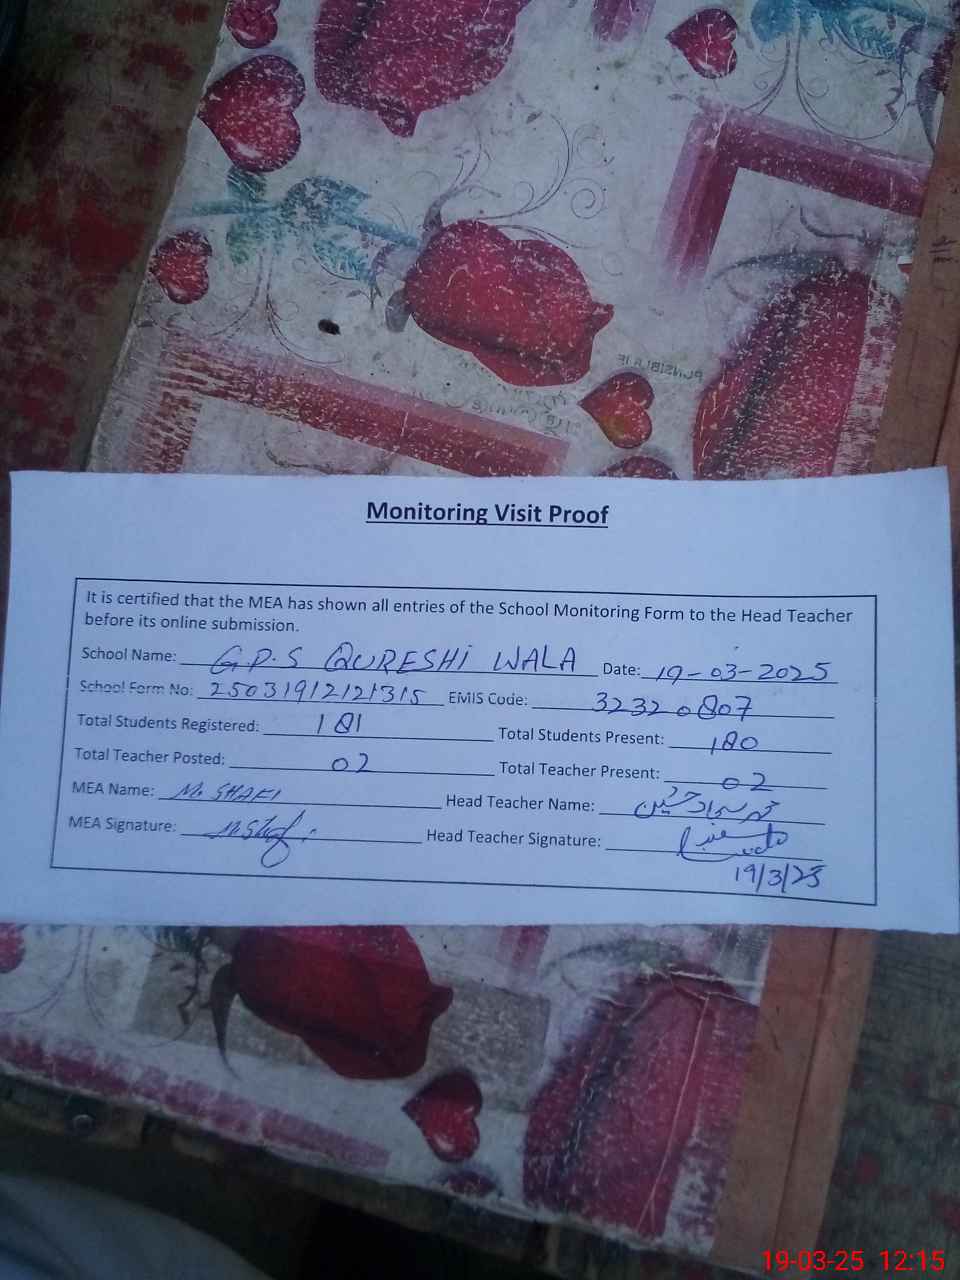 Monitoring Visit Proof
It is certified that the MEA has shown all entries of the School Monitoring Form to the Head Teacher
before its online submission.
School Name: G.P.S QURESHI WALA Date: 19-03-2025
School Form No: 2503191212131 5 EMIS Code: 32320807
Total Students Registered: 181 Total Students Present: 180
Total Teacher Posted: 02 Total Teacher Present: 02
MEA Name: M. SHAFI Head Teacher Name: محمد سجاد حسین
MEA Signature: Head Teacher Signature:
19/3/25
19-03-25 12:15